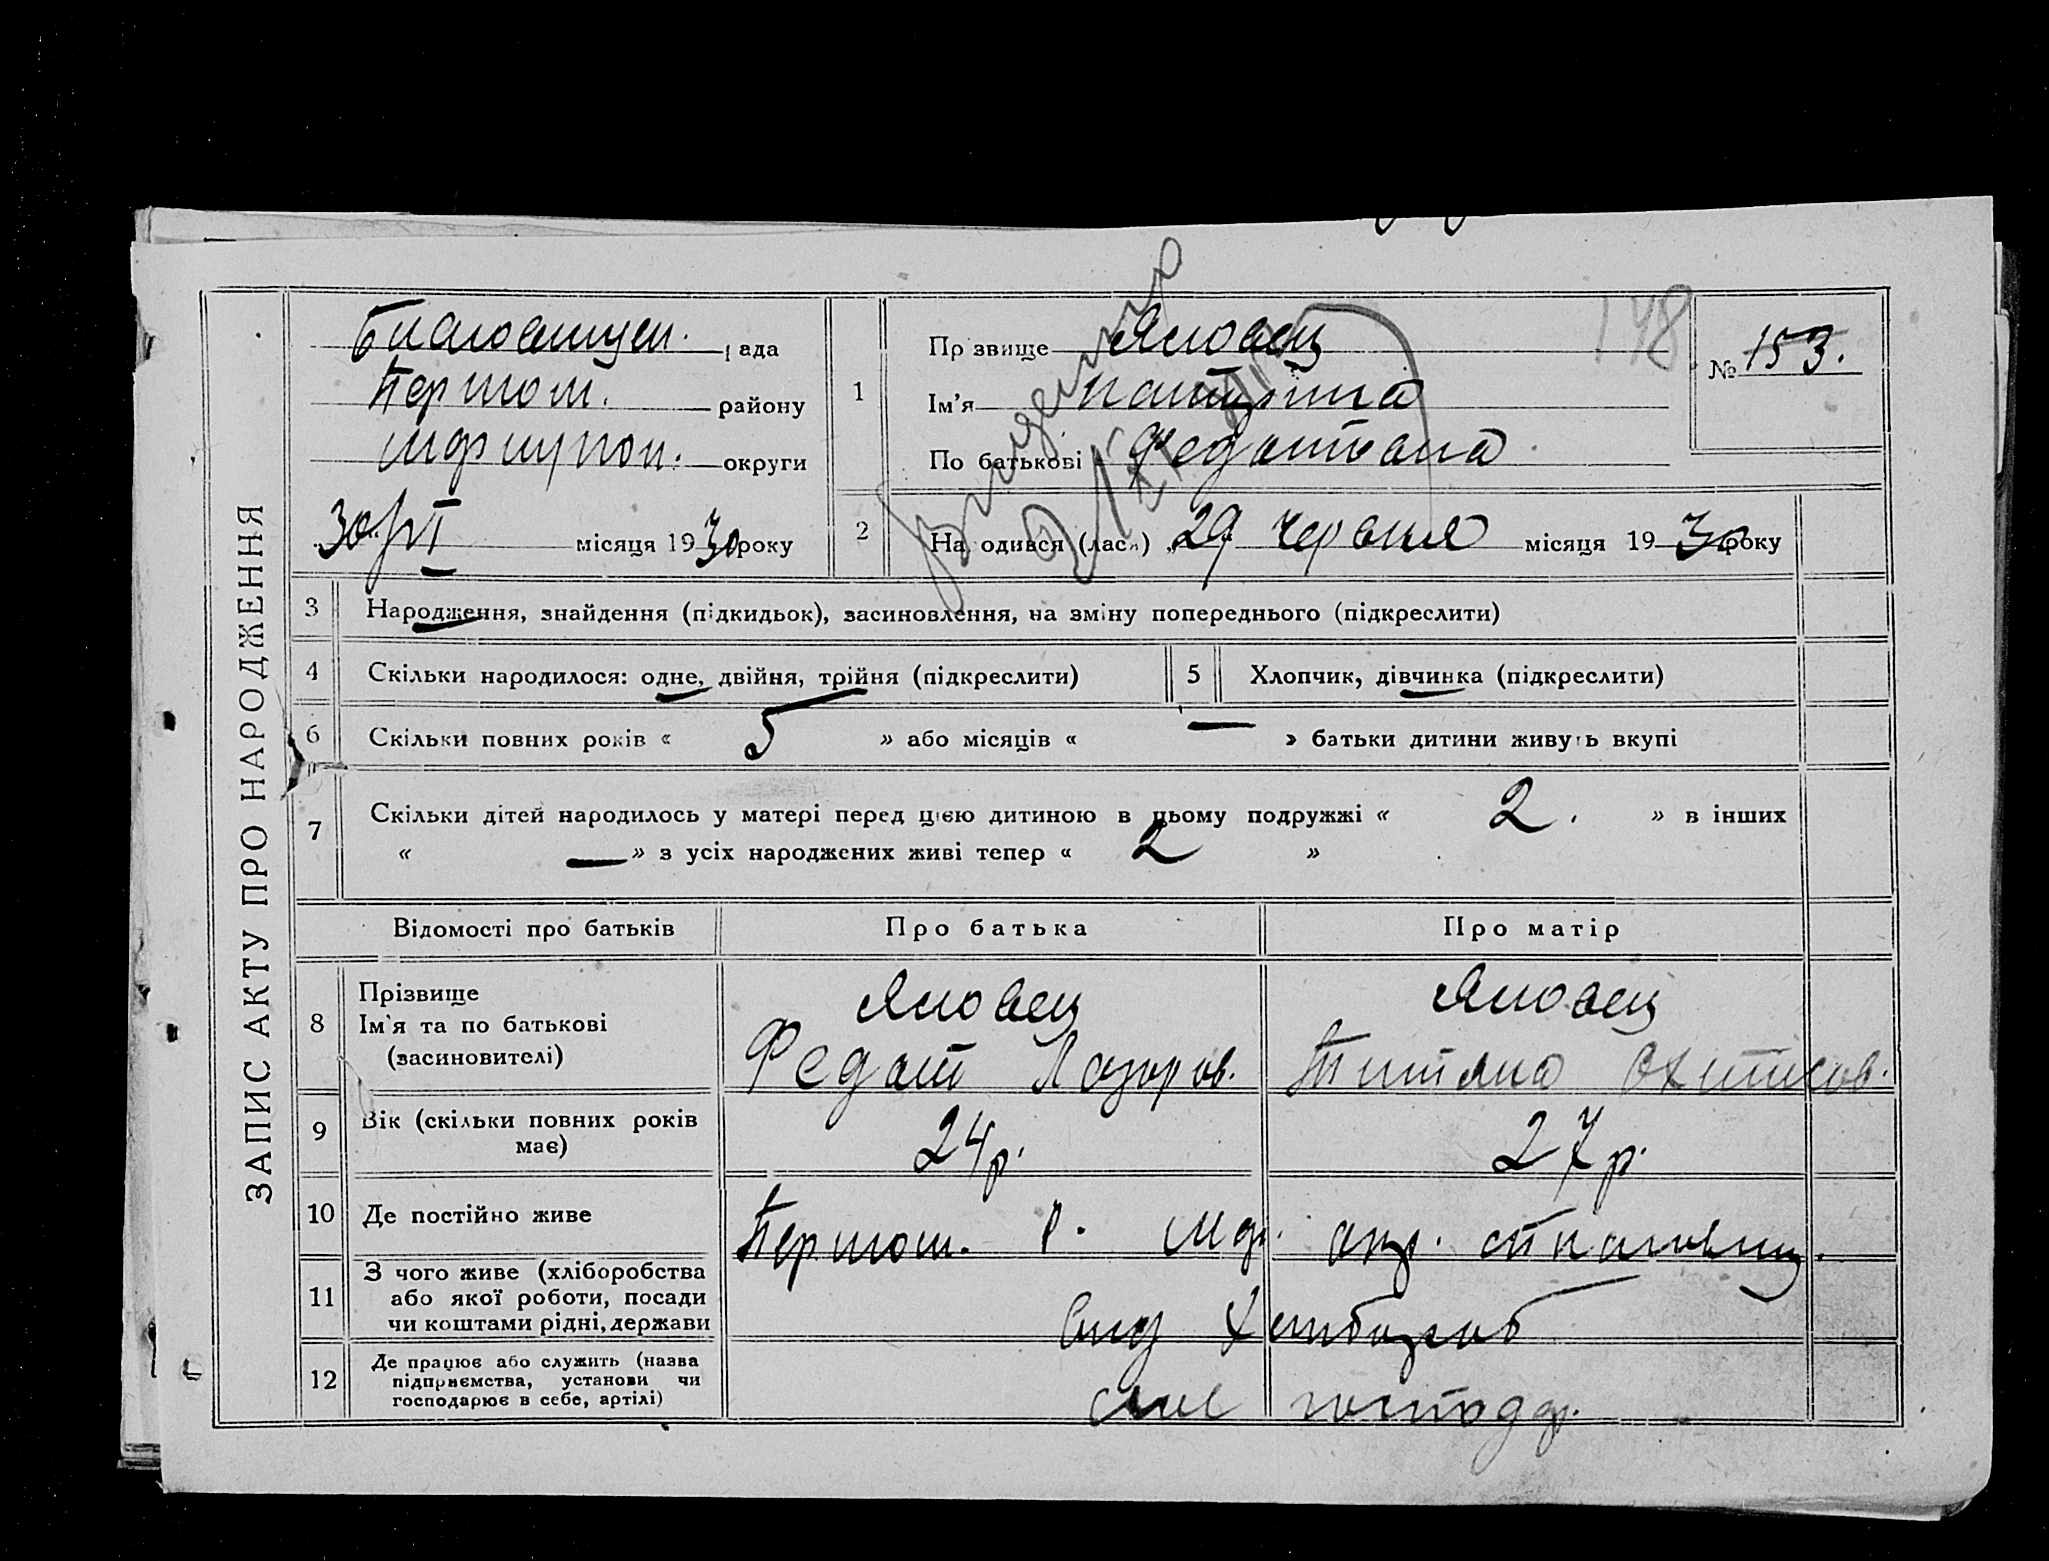 ЗАПИС АКТУ ПРО НАРОДЖЕННЯ
рада
Першом. району
округи
30/VI місяця 1930 року
1
Прізвище Яловец
Ім'я
По батькові Федотовна
148
№ 153.
2
Народився (лася) „29 червня місяця 1930 року
3 Народження, знайдення (підкидьок), засиновлення, на зміну попереднього (підкреслити)
4 Скільки народилося: одне, двійня, трійня (підкреслити)
5 Хлопчик, дівчинка (підкреслити)
6 Скільки повних років « 5 » або місяців « — » батьки дитини живуть вкупі
7 Скільки дітей народилось у матері перед цією дитиною в цьому подружжі « 2. » в інших
« — » з усіх народжених живі тепер « 2 »
Відомості про батьків Про батька Про матір
8 Прізвище
Ім'я та по батькові
(засиновителі)
Яловец
Федот Лазоров.
Яловец
9 Вік (скільки повних років
має)
24 р.
27 р.
10 Де постійно живе
Першом. р.
11 З чого живе (хліборобства
або якої роботи, посади
чи коштами рідні, держави
12 Де працює або служить (назва
підприємства, установи чи
господарює в себе, артілі)
господар.